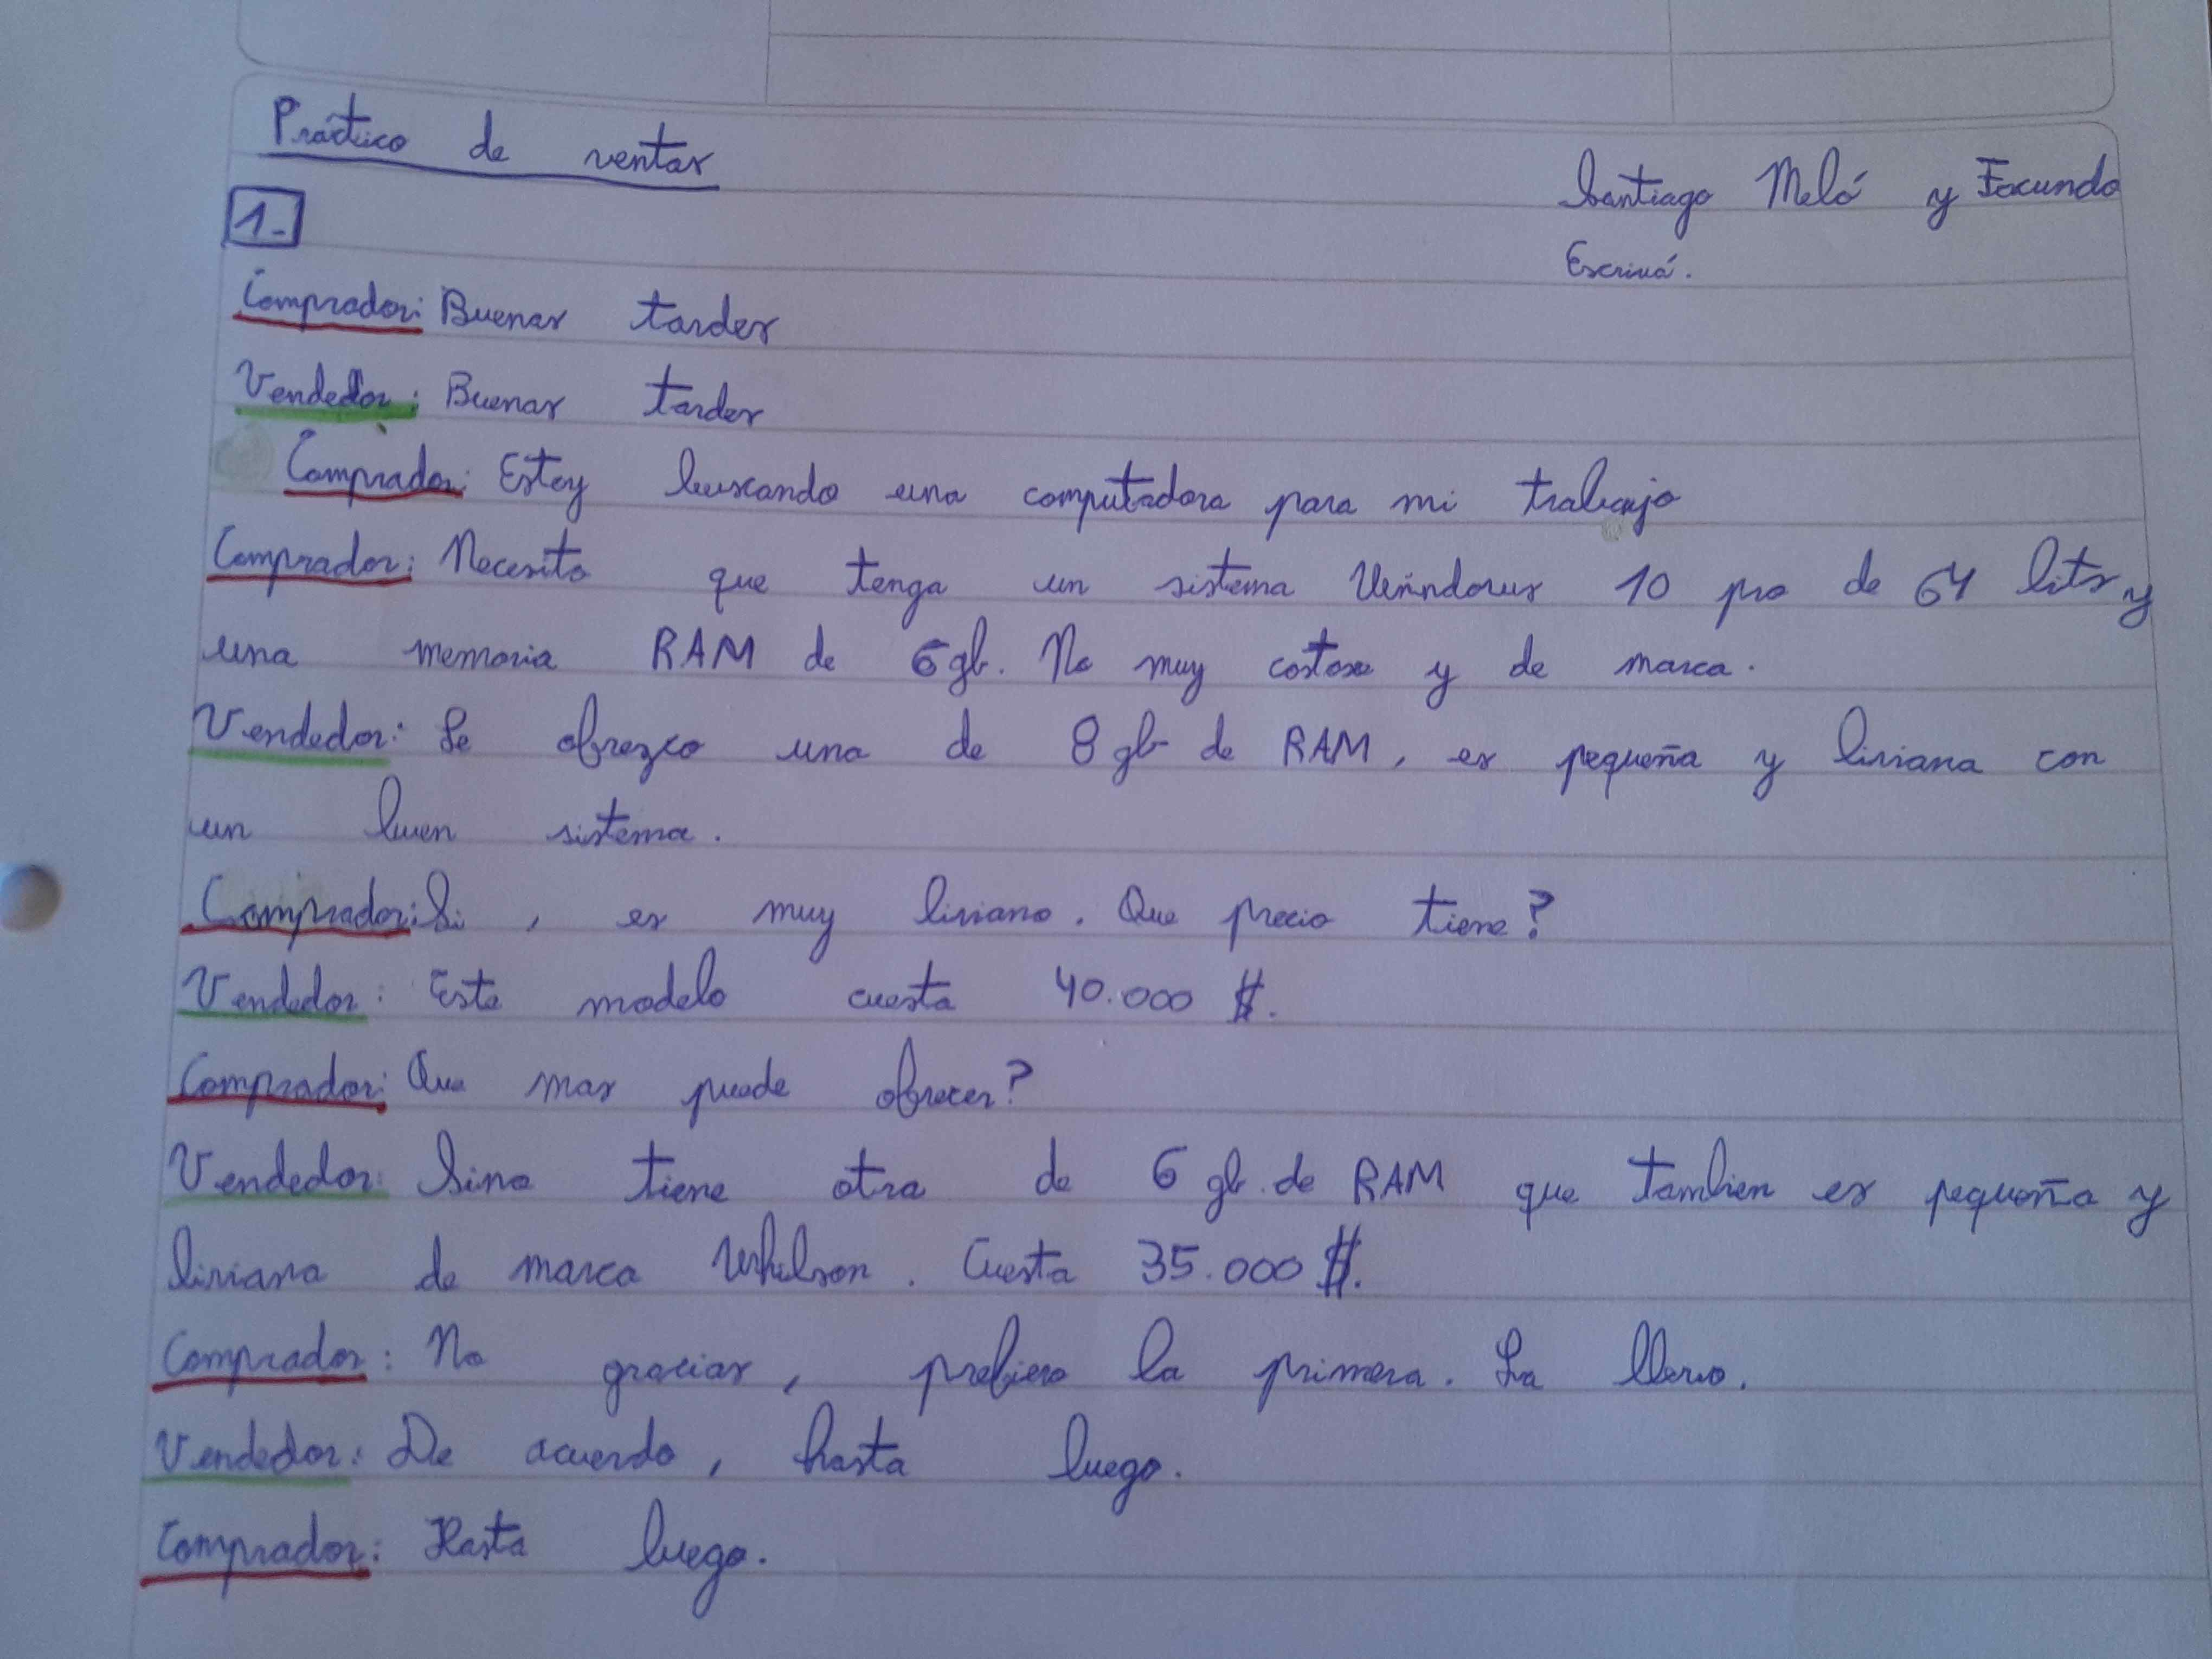 Práctico de ventas
Santiago Meló y Facundo
Escrivá.
1.-
Comprador: Buenas tardes
Vendedor: Buenas tardes
Comprador: Estoy buscando una computadora para mi trabajo
Comprador: Necesito que tenga un sistema Windows 10 pro de 64 bits y
una memoria RAM de 6 gb. No muy costosa y de marca.
Vendedor: Le ofrezco una de 8 gb de RAM, es pequeña y liviana con
un buen sistema.
Comprador: Si, es muy liviano. Que precio tiene?
Vendedor: Este modelo cuesta 40.000 $.
Comprador: Que mas puede ofrecer?
Vendedor: Sino tiene otra de 6 gb. de RAM que tambien es pequeña y
liviana de marca Whilson. Cuesta 35.000 $.
Comprador: No gracias, prefiero la primera. La llevo.
Vendedor: De acuerdo, hasta luego.
Comprador: Hasta luego.